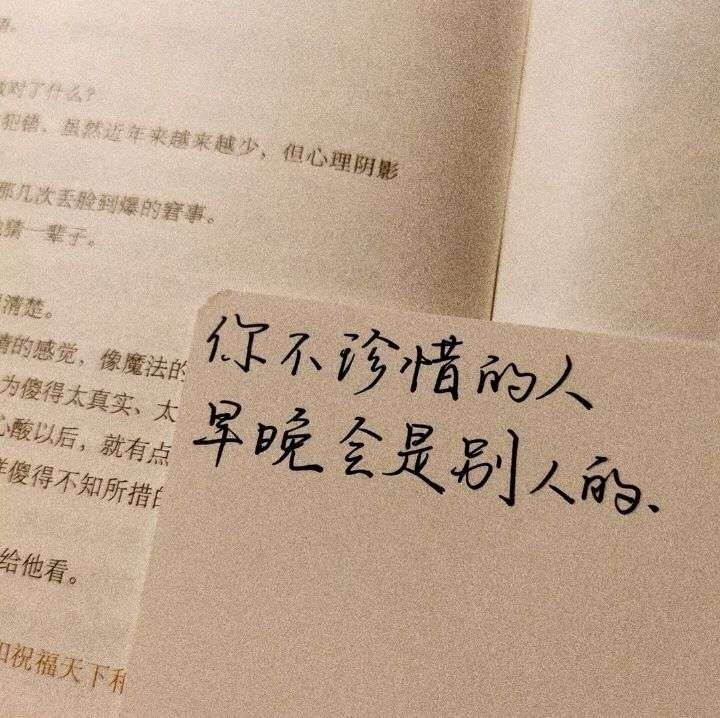 对了什么？
犯错，虽然近年来越来越少，但心理阴影
那几次丢脸到爆的窘事。
猜一辈子。
清楚。
情的感觉，像魔法的
为傻得太真实、太
心酸以后，就有点
样傻得不知所措的
给他看。
祝福天下
你不珍惜的人
早晚会是别人的、